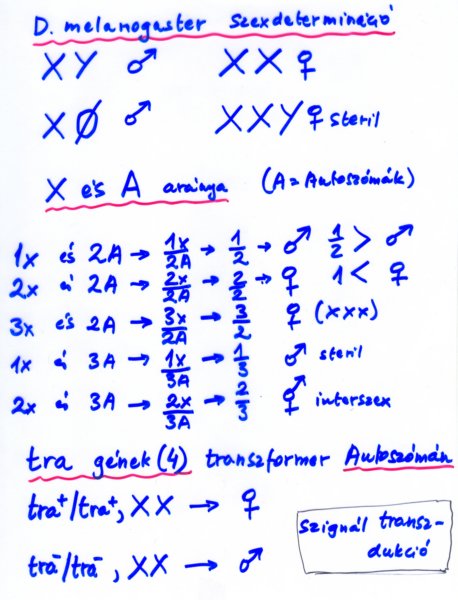 D. melanogaster szexdetermináció
XY ♂ XX ♀
XØ ♂ XXY ♀ steril
X és A aránya (A = Autoszómák)
1x és 2A → 1x/2A → 1/2 → ♂ 1/2 > ♂
2x és 2A → 2x/2A → 2/2 → ♀ 1 < ♀
3x és 2A → 3x/2A → 3/2 ♀ (xxx)
1x és 3A → 1x/3A → 1/3 ♂ steril
2x és 3A → 2x/3A → 2/3 ⚥ interszex
tra gének (4) transzformer Autoszómán
tra⁺/tra⁺, XX → ♀
tra⁻/tra⁻, XX → ♂
szignál transz-
dukció